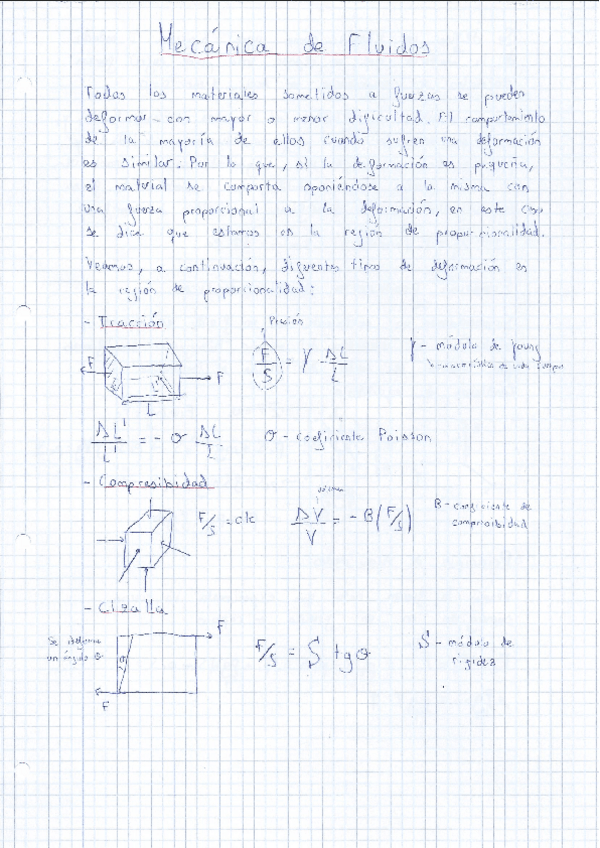 Mecánica de Fluidos
Todos los materiales sometidos a fuerzas se pueden
deformar con mayor o menor dificultad. El comportamiento
de la mayoría de ellos cuando sufren una deformación
es similar. Por lo que, si la deformación es pequeña,
el material se comporta oponiéndose a la misma con
una fuerza proporcional a la deformación, en este caso
se dice que estamos en la región de proporcionalidad.
Veamos, a continuación, diferentes tipos de deformación en
la región de proporcionalidad:
- Tracción
Presión
F F L
F/S = Y ΔL/L
Y - módulo de Young
característico de cada cuerpo
ΔL'/L' = - σ ΔL/L
σ - coeficiente Poisson
- Compresibidad
F/S = cte
volumen
ΔV/V = - B (F/S)
B - coeficiente de
compresibidad
- Cizalla
Se deforma
un ángulo θ
F θ F
F/S = S tgθ
S - módulo de
rigidez